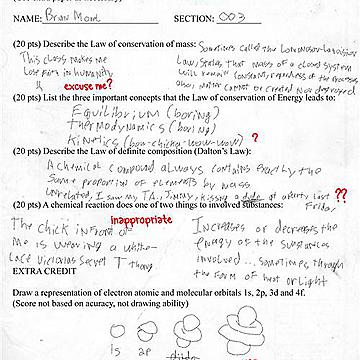 NAME: Brian Morel SECTION: 003
(20 pts) Describe the Law of conservation of mass: Sometimes called the Lomonosov-Lavoisier
This class makes me law, states that mass of a closed system
lose faith in humanity will remain constant, regardless of the processes
excuse me? other matter cannot be created nor destroyed
(20 pts) List the three important concepts that the Law of conservation of Energy leads to:
Equilibrium (boring)
Thermodynamics (boring)
Kinetics (bow-chicka-wow-wow) ?
(20 pts) Describe the Law of definite composition (Dalton's Law):
A chemical compound always contains exactly the
same proportion of elements by mass.
unrelated, I saw my TA, Jimmy, kissing a dude at a party last Friday ??
(20 pts) A chemical reaction does one of two things to involved substances:
inappropriate
The chick in front of Increases or decreases the
me is wearing a white energy of the substances
lace Victorias Secret T thong involved... sometimes through
the form of heat or light
EXTRA CREDIT
Draw a representation of electron atomic and molecular orbitals 1s, 2p, 3d and 4f.
(Score not based on acuracy, not drawing ability)
1s 2p